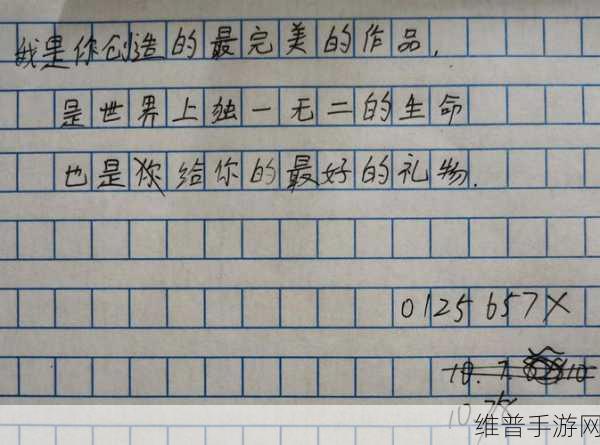 我是你创造的最完美的作品.
是世界上独一无二的生命
也是你给你的最好的礼物.
0125657X
维普手游网